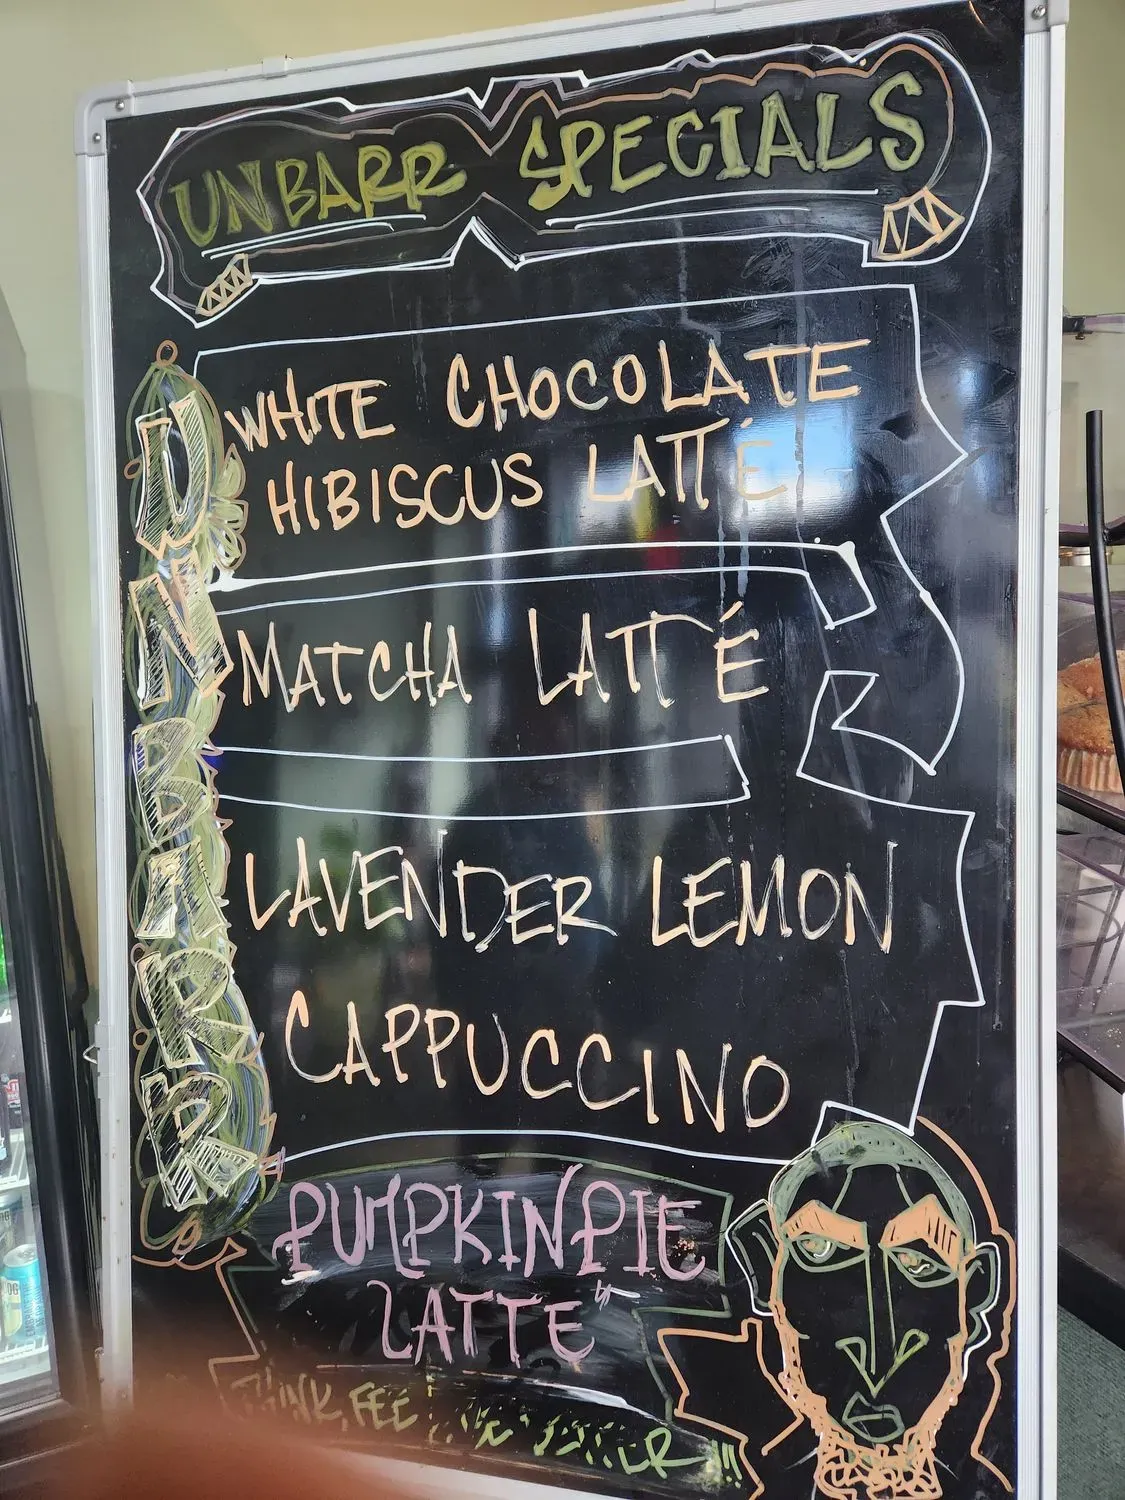 UNBARR SPECIALS
UNBARR
WHITE CHOCOLATE
HIBISCUS LATTÉ
MATCHA LATTÉ
LAVENDER LEMON
CAPPUCCINO
PUMPKIN PIE
LATTE
THINK, FEE